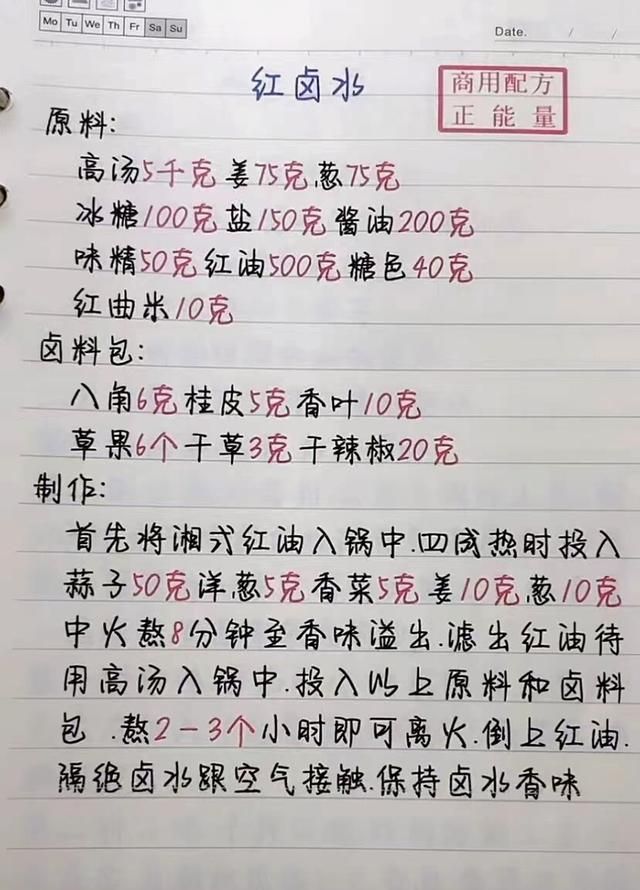 Mo Tu We Th Fr Sa Su
Date. / /
红卤水
商用配方
正能量
原料:
高汤5千克 姜75克 葱75克
冰糖100克 盐150克 酱油200克
味精50克 红油500克 糖色40克
红曲米10克
卤料包:
八角6克 桂皮5克 香叶10克
草果6个 干草3克 干辣椒20克
制作:
首先将湘式红油入锅中.四成热时投入
蒜子50克 洋葱5克 香菜5克 姜10克 葱10克
中火熬8分钟至香味溢出.滤出红油待
用高汤入锅中.投入以上原料和卤料
包.熬2-3个小时即可离火.倒上红油.
隔绝卤水跟空气接触.保持卤水香味